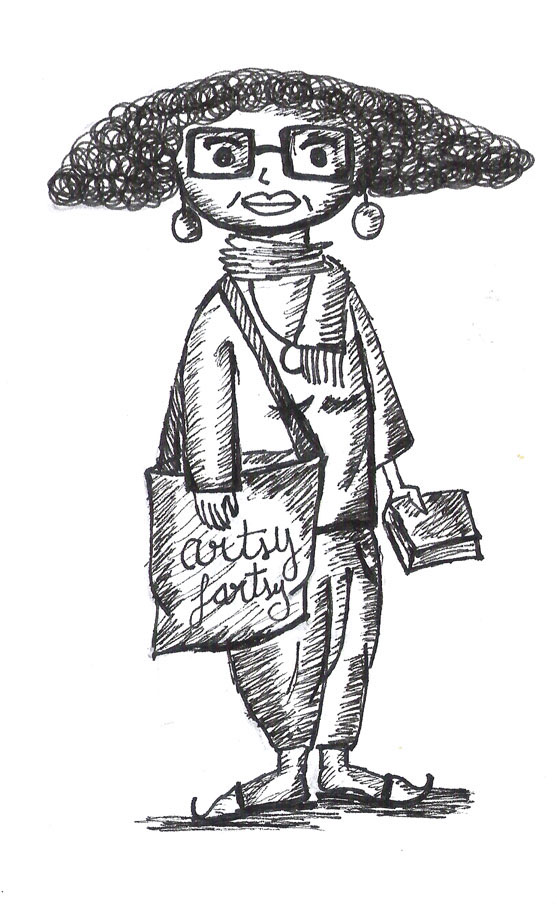 artsy
fartsy